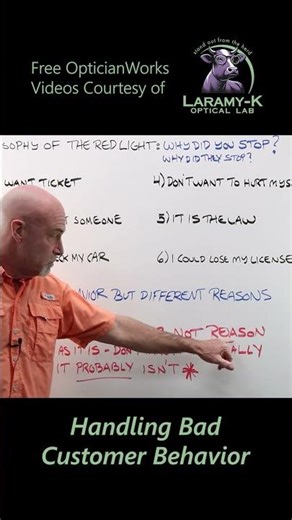 Free OpticianWorks
Videos Courtesy of
stand out from the herd
LARAMY-K
OPTICAL LAB
SOPHY OF THE RED LIGHT: WHY DID YOU STOP?
WHY DID THEY STOP?
WANT TICKET
4) DON'T WANT TO HURT MYS
SOMEONE
5) IT IS THE LAW
MY CAR
6) I COULD LOSE MY LICENSE
VIOR BUT DIFFERENT REASONS
NOT REASON
AS IT IS - DON'T ALLY
IT PROBABLY ISN'T *
Handling Bad
Customer Behavior